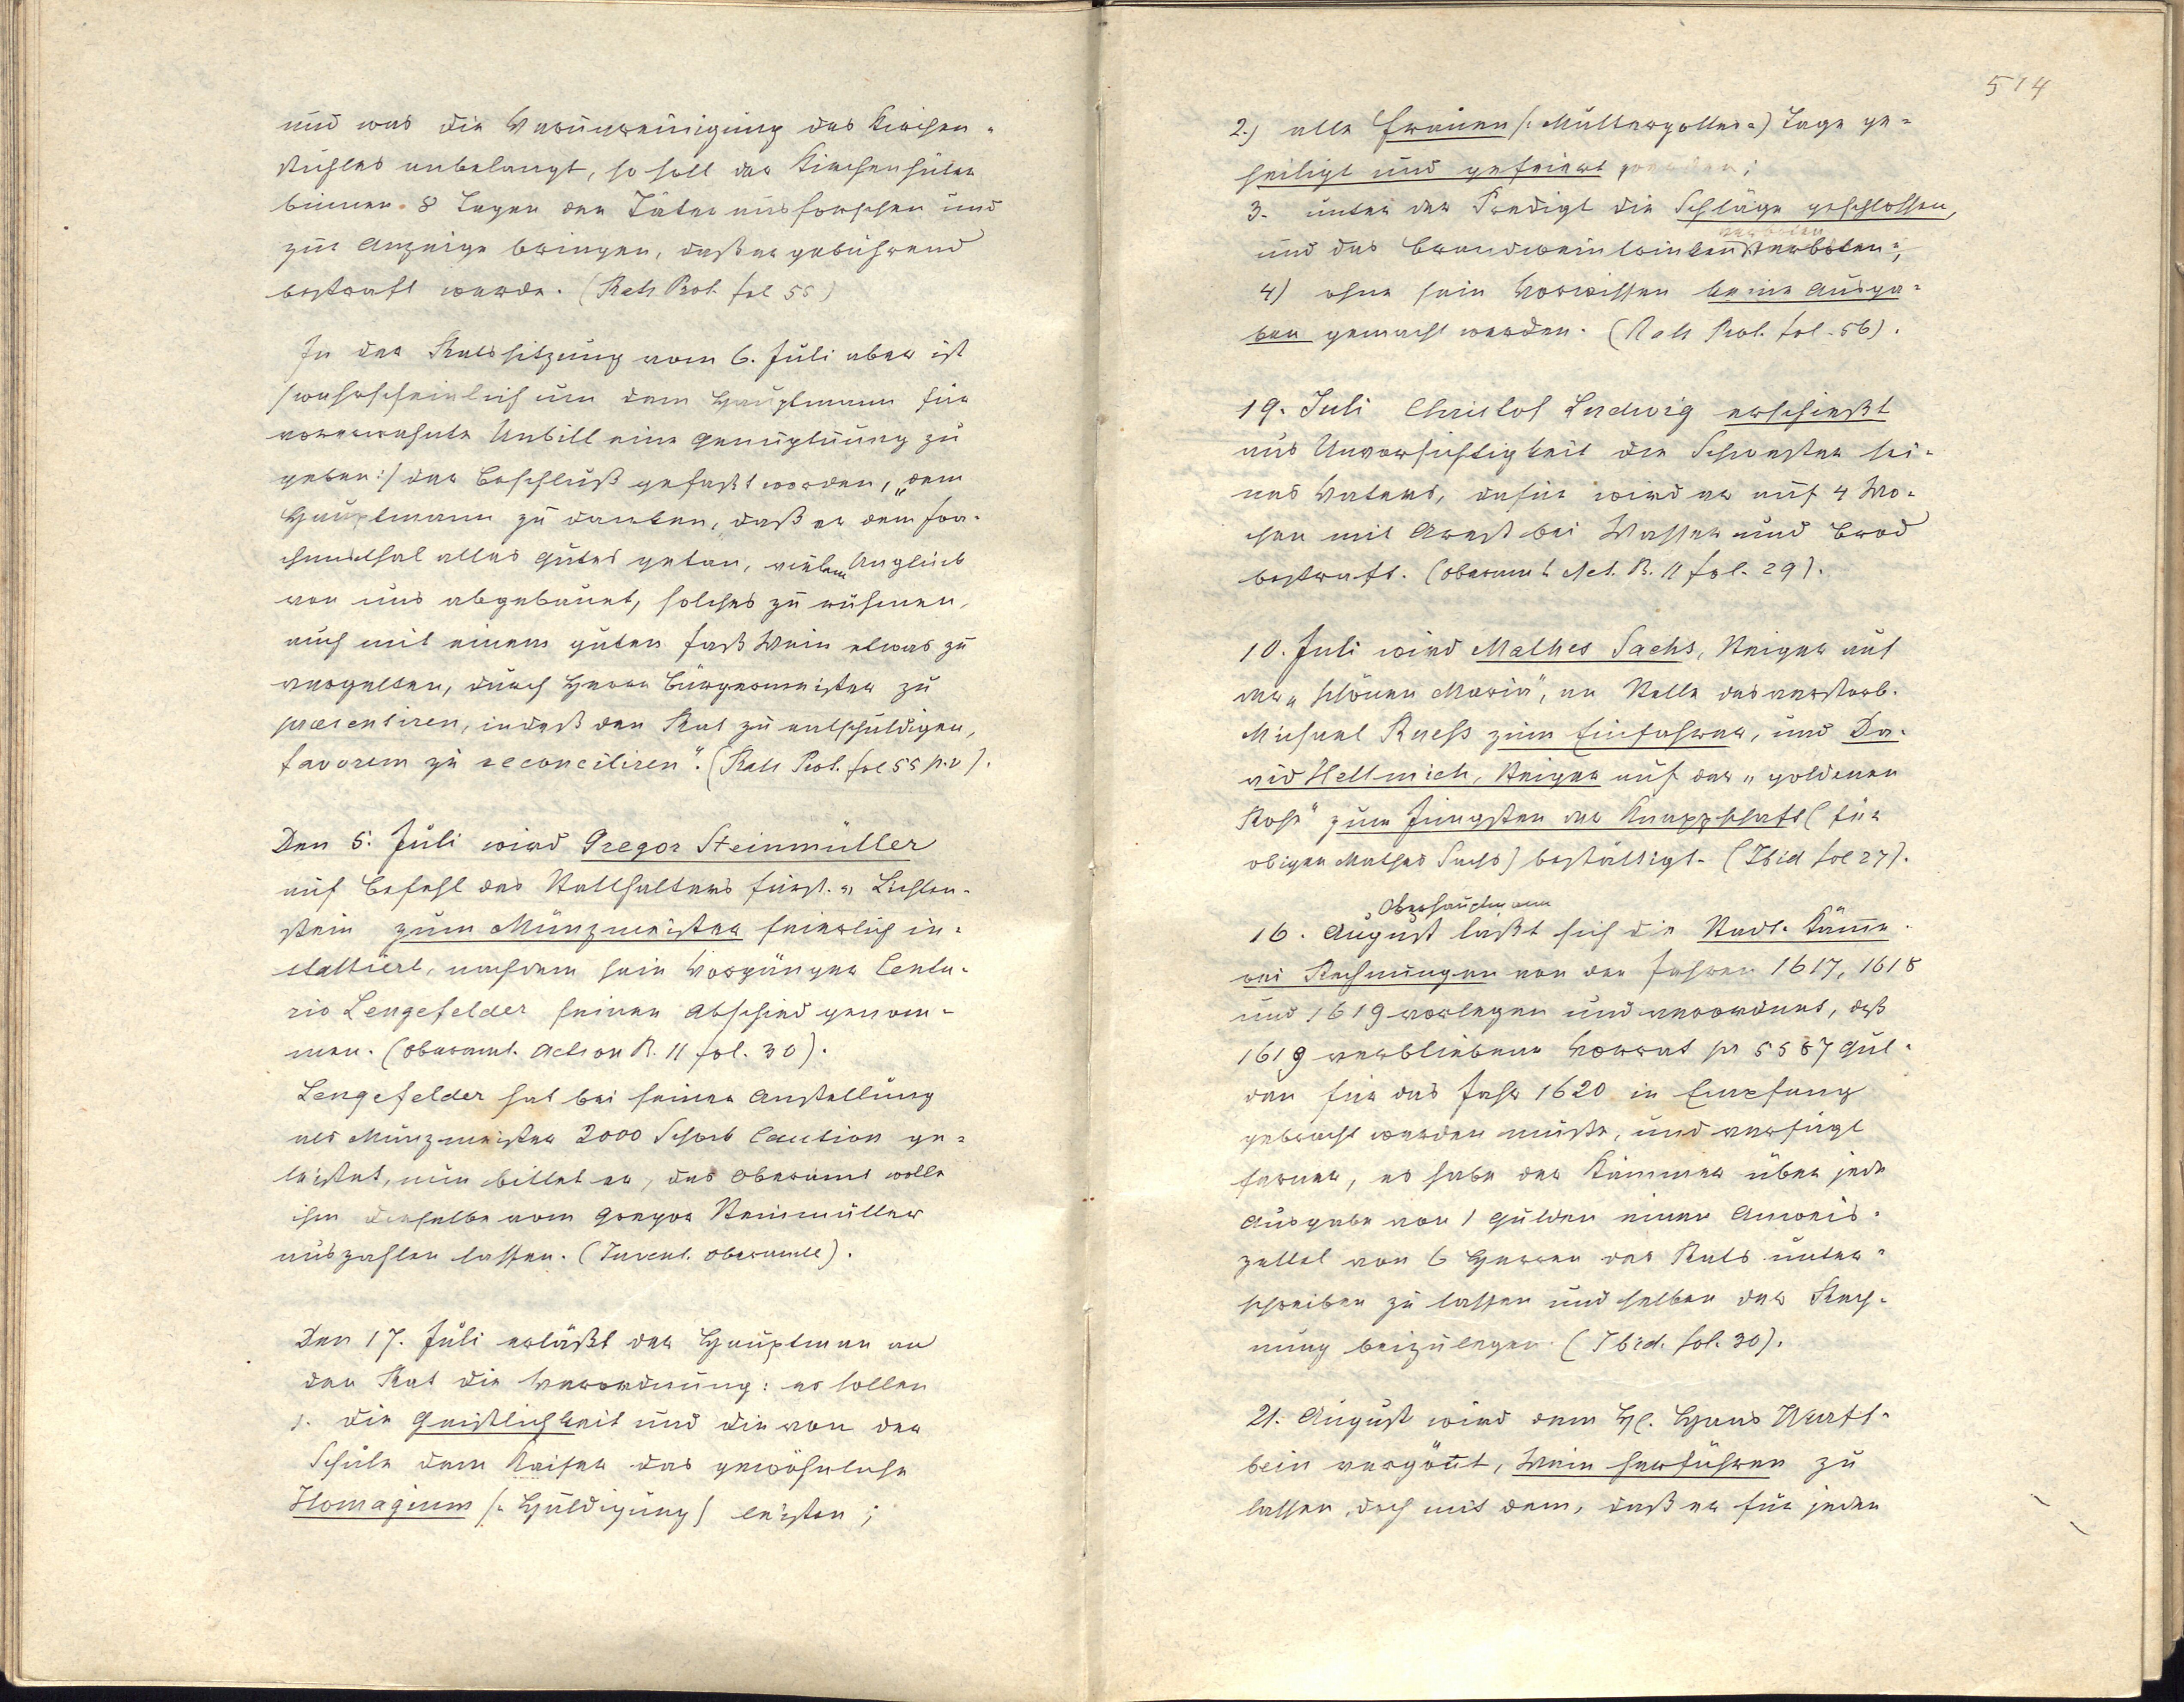 und was die Verunreinigung des Kirchen-
stuhles anbelangt, so soll der Kirchenhüter
binnen 8 Tagen den Täter ausforschen und
zur Anzeige bringen, daß er gebührend
bestraft werde. (Rats Prot. fol 55)
In der Ratssitzung vom 6. Juli aber ist
/wahrscheinlich um dem Hauptmann für
vorerwähnte Unbill eine Genugtuung zu
geben:/ der Beschluß gefaßt worden, „dem
Hauptmann zu danken, daß er dem Joa-
chimsthal alles Gutes getan, vielem Unglück
von uns abgebauet, solches zu rühmen,
auch mit einem guten Faß Wein etwas zu
vergelten, durch Herrn Bürgermeister zu
praesentiren, indeß den Rat zu entschuldigen,
favorem zu reconciliren". (Rats Prot. fol 55 p.v).
Den 5. Juli wird Gregor Steinmüller
auf Befehl des Statthalters Fürst. v. Lichten-
stein zum Münzmeister feierlich in-
stalliert, nachdem sein Vorgänger Centu-
rio Lengefelder seinen Abschied genom-
men. (Oberamt. Action R. 11 fol. 30).
Lengefelder hat bei seiner Anstellung
als Münzmeister 2000 Schock Caution ge-
leistet, nun bittet er, das Oberamt wolle
ihm dieselbe vom Gregor Steinmüller
auszahlen lassen. (Invent. Oberamte).
Den 17. Juli erläßt der Hauptman an
den Rat die Verordnung: es sollen
1. die Geistlichkeit und die von der
Schule dem Kaiser das gewöhnliche
Homagium (: Huldigung) leisten;
514
2.) alle Frauen (: Muttergottes=) Tage ge-
heiligt und gefeiert werden;
3. unter der Predigt die Schläge geschlossen,
verboten
und das Brandweintrinken verboten;
4) ohne sein Vorwissen keine Ausga-
ben gemacht werden. (Rats Prot. fol. 56).
19. Juli Christof Ludwig erschießt
aus Unvorsichtigkeit die Schwester sei-
nes Vaters, dafür wird er auf 4 Wo-
chen mit Arrest bei Wasser und Brod
bestraft. (Oberamt Act. R. 11 fol. 29).
10. Juli wird Mathes Sachs, Steiger auf
der „schönen Maria", an Stelle des verstorb.
Michael Ruess zum Einfahrer, und Da-
vid Hellmich, Steiger auf der „goldenen
Rose" zum Jüngsten der Knappschaft (für
obigen Mathes Sachs) bestättigt. (Ibid fol 27).
Oberhauptmann
16. August läßt sich die Stadt- Kämme-
rei Rechnungen von den Jahren 1617, 1618
und 1619 vorlegen und verordnet, daß
1619 verbliebene Vorrat pr 5587 Gul-
den für das Jahr 1620 in Empfang
gebracht werden müßte, und verfügt
ferner, es habe der Kämmer über jede
Ausgabe von 1 Gulden einen Anweis-
zettel von 6 Herren des Rats unter-
schreiben zu lassen und selben der Rech-
nung beizulegen. (Ibid. fol. 30).
21. August wird dem H. Hans Wurff-
bein vergönt, Wein herführen zu
lassen, doch mit dem, daß er für jeden